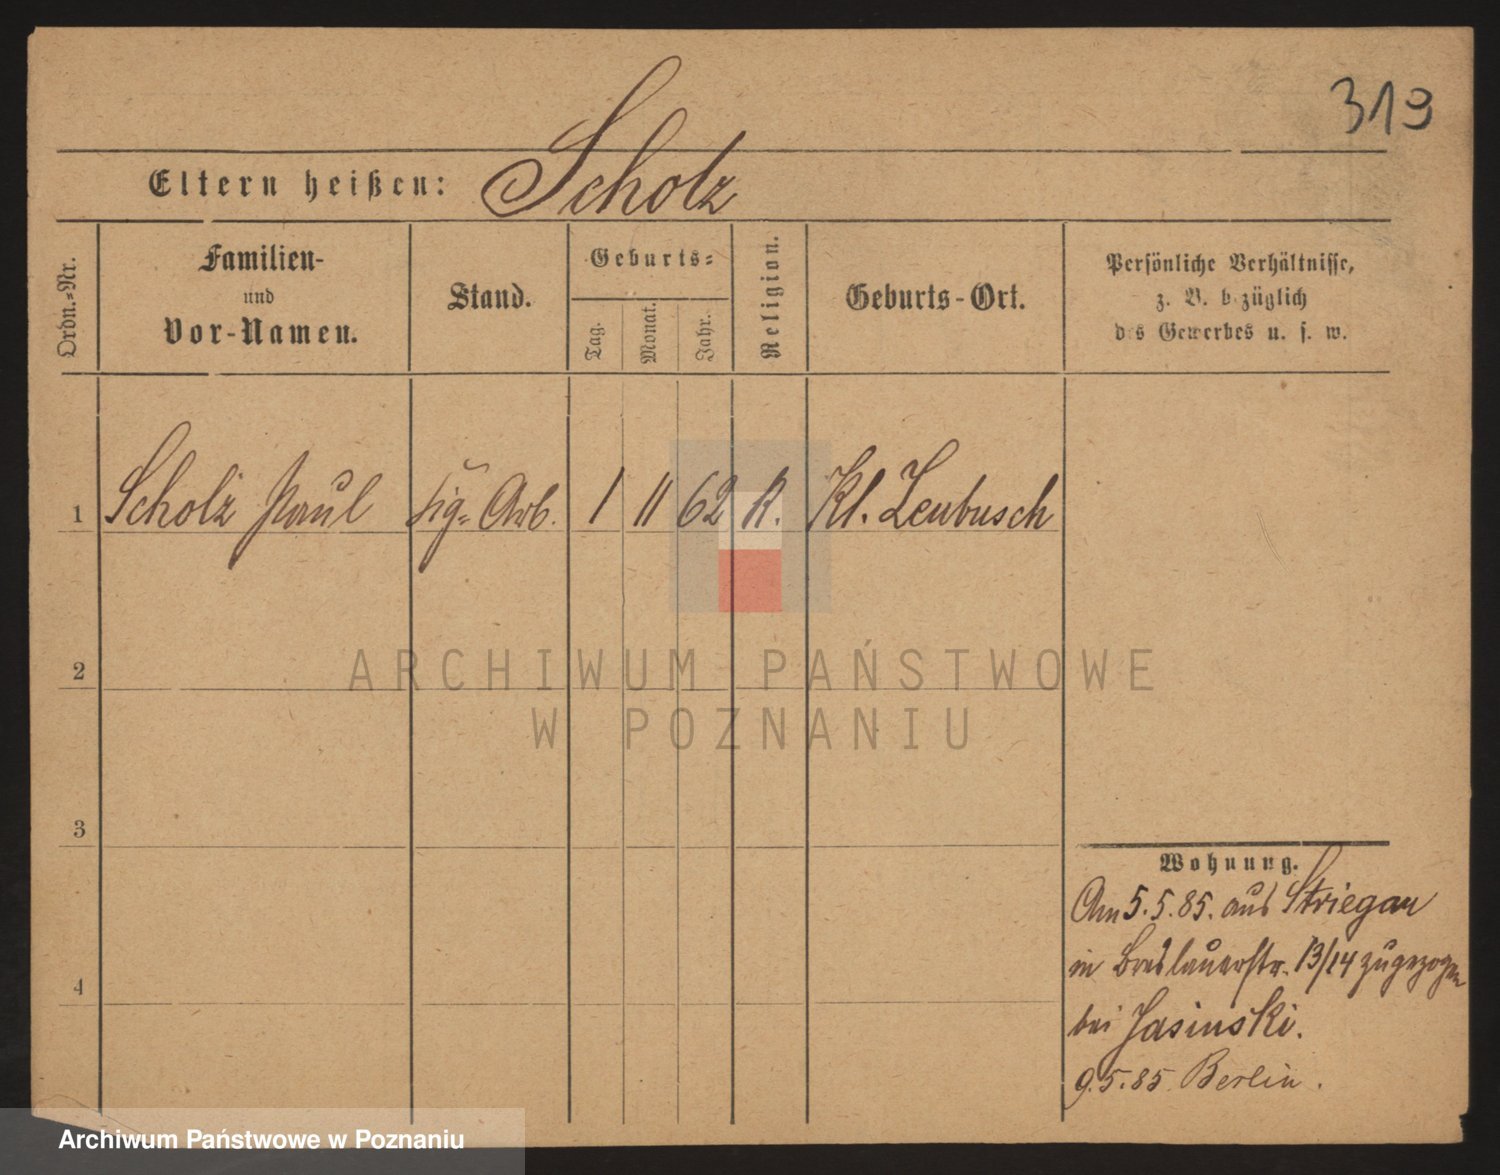 319
Eltern heißen: Scholz
Ordn.=Nr.
Familien-
und
Vor-Namen.
Stand.
Geburts=
Tag.
Monat.
Jahr.
Religion.
Geburts-Ort.
Persönliche Verhältnisse,
z. B. bezüglich
des Gewerbes u. s. w.
1 Scholz Paul Zig= Arb. 1 11 62 K. Kl. Leubusch
2
3
4
Wohnung.
Am 5.5.85. aus Striegau
in Breslauerstr. 13/14 zugezogen
bei Jasinski.
9.5.85 Berlin.
ARCHIWUM PAŃSTWOWE
W POZNANIU
Archiwum Państwowe w Poznaniu